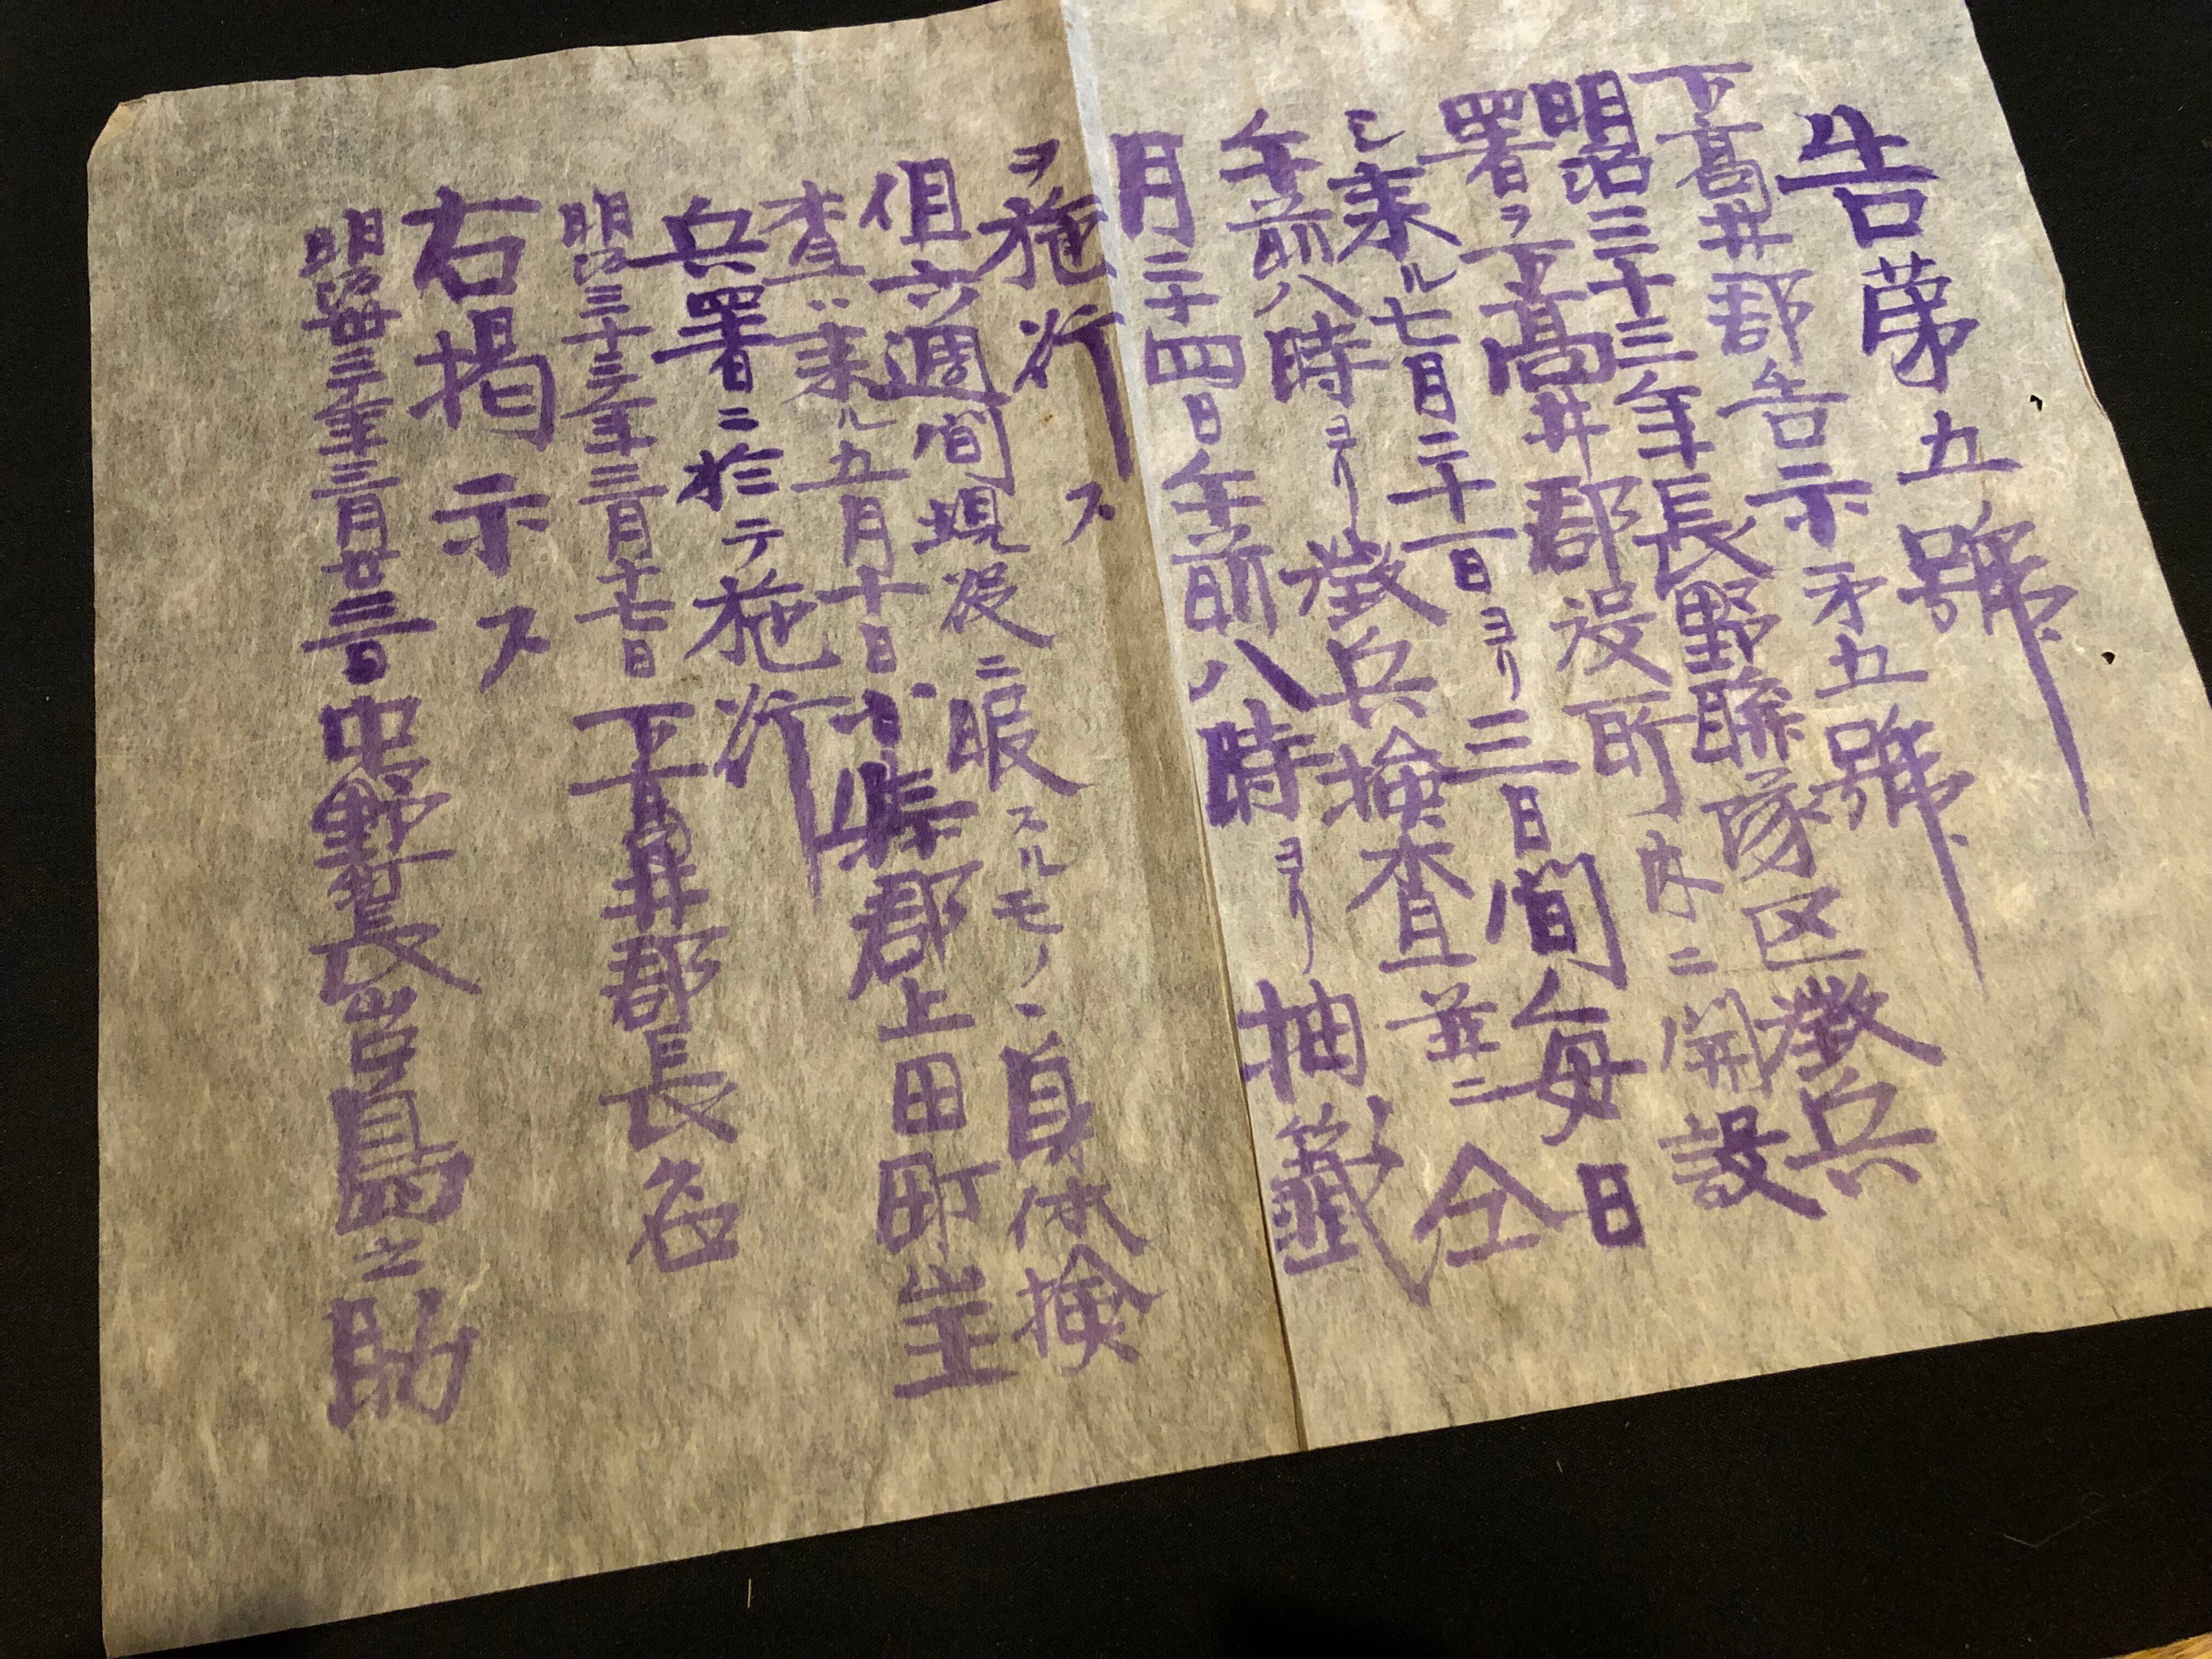 告第五號
下高井郡告示第五號
明治三十三年長野聯隊区徴兵
署ヲ下高井郡役所内ニ開設
シ来ル七月二十一日ヨリ三日間毎日
午前八時ヨリ徴兵検査並ニ仝
月二十四日午前八時ヨリ抽籤
ヲ施行ス
但六週間現役ニ服スルモノヽ身体検
査ハ来ル五月十日小縣郡上田町
兵署ニ於テ施行
明治三十三年三月十七日 下高井郡長名
右掲示ス
明治卅三年三月廿三日 中野町長 島之助